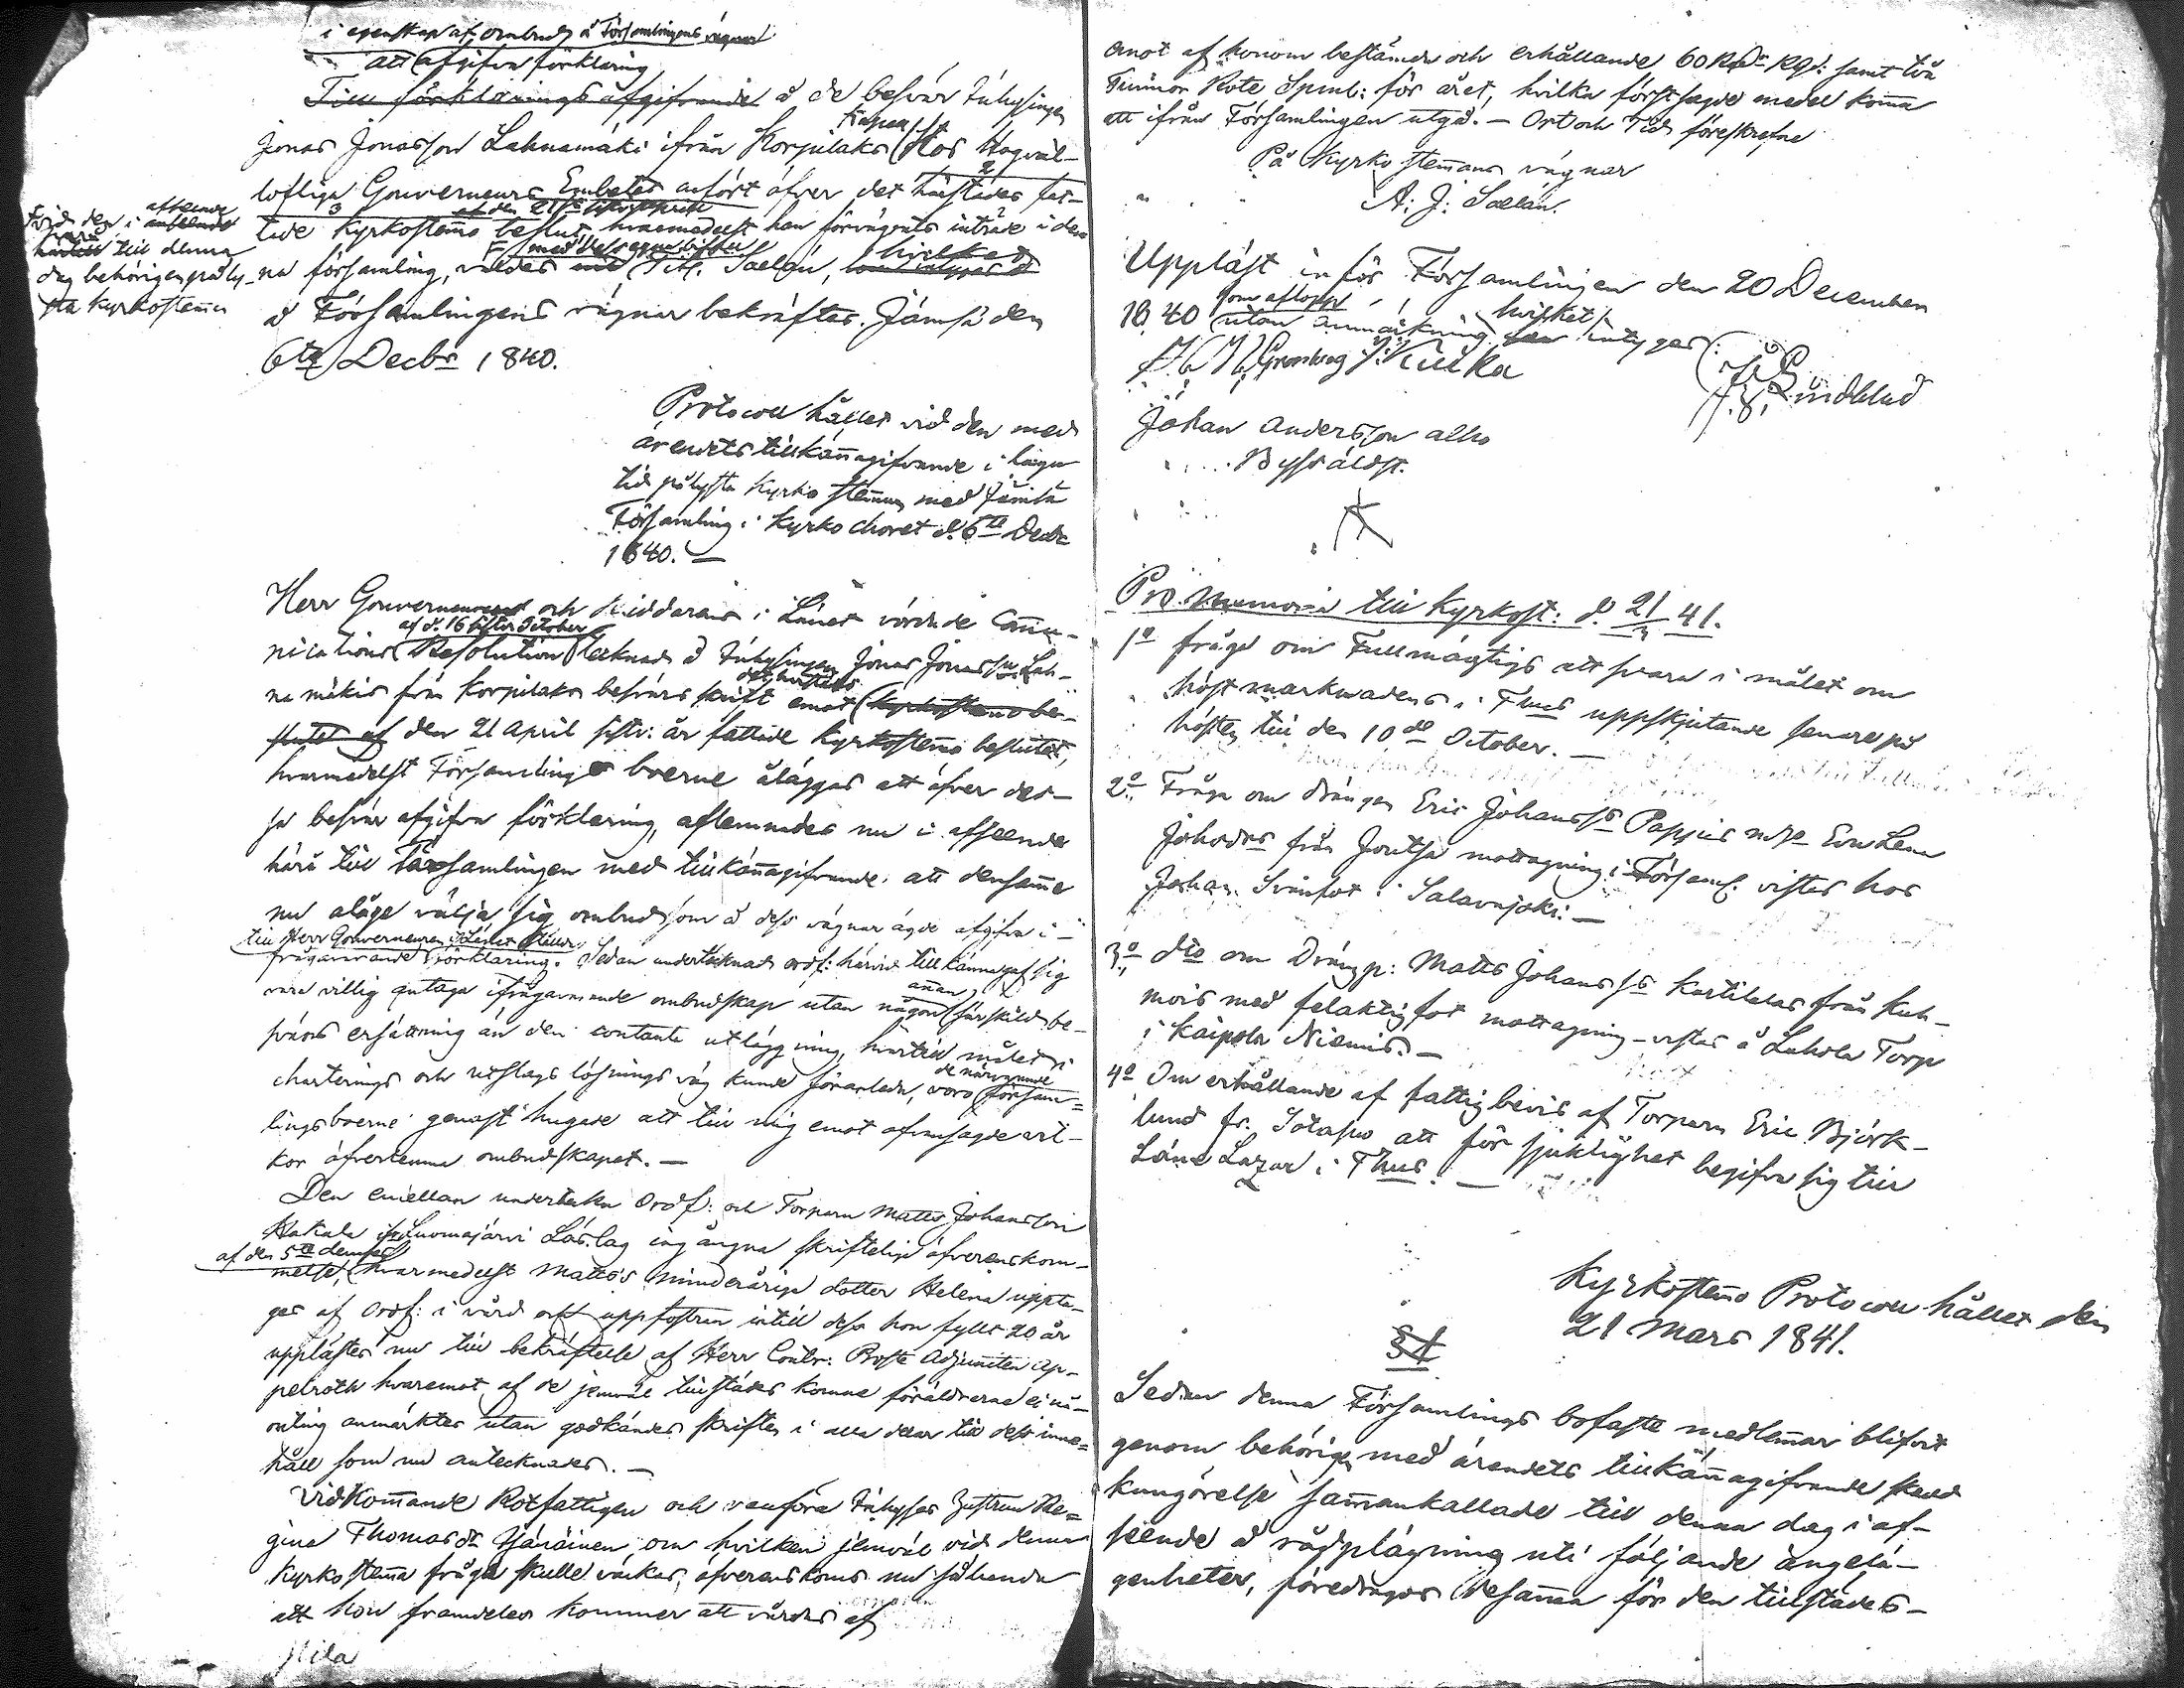 i egenskap af ombud å Församlingens vägnar
att afgifva förklaring
Till förklarings afgifvande å de besvär Inhysingen
Jonas Jonasson Lahnamäki ifrån Korpilaks Kapell hos Högväl-
lofliga Gouverneurs Embetet anfört öfver det härstädes fat-
tade Kyrkostemo beslut hvarmedelst han förvägrats inträde i den
af den 21 sistl. April
na församling, valdes Tit. Saelan, hvilket
å Församlingens vägnar bekräftes. Jämsä den
6te Decbr 1840.
Vid den i afseende
härå till denna
dag behörigen påly-
sta Kyrkostemma
Protocoll hållet vid den med
ärendets tillkännagifvande i laga
tid pålysta Kyrko stemma med Jämsä
Församling i Kyrko choret d. 6te Decbr
1840. —
Herr Gouverneurens och Riddarens i Länet vördade Commu-
af d. 16 sistl. October
nications Resolution tecknad å Inhysingen Jonas Jonasson Lah-
na mäkis från Korpilaks besvärs skrift emot det härstädes Kyrkostemo be-
slutet af den 21 April sistl: år fattade Kyrkostemo beslutet,
hvarmedelst Församlings boerne åläggas att öfver des-
sa besvär afgifva förklaring, aflemnades nu i afseende
härå till Församlingen med tillkännagifvande att densamme
nu ålåge välja sig ombud som å dess vägnar ägde afgifva i
till Herr Gouverneuren i Länet ställd
frågavarande förklaring. Sedan undertecknad ordf: härvid tillkännagaf sig
vara villig antaga ifrågavarande ombudskap utan någon annan särskild be-
svärs ersättning än den contanta utläggning, hvartill målet i
charterings och utslags lösnings väg kunde föranleda, voro de närvarande försam-
lings boerne genast hugade att till mig emot ofvansagde vil-
kor öfverlemna ombudskapet. —
Den emellan undertecknad Ordf: och Torparn Matts Johansson
Hakala ifrån Luomajärvi Läslag ingångna skriftelige öfverenskom-
af den 5te dennes
melse, hvarmedelst Matts's minderåriga dotter Helena uppta-
ges af Ordf: i vård och uppfostran intill dess hon fyllt 20 år
upplästes nu till bekräftelse af Herr Contr: Proste Adjuncten Ap-
pelroth hvaremot af de jemväl tillstädes komne föräldrarne ei nå-
onting anmärktes utan godkändes skriften i alla delar till dess inne-
håll som nu antecknades. —
Vidkommande Rotfattigen och vanföra Inhyses hustrun Re-
gina Thomasdr Hjäräinen, om hvilken jemväl vid denna
Kyrko stemma fråga skulle väckas, öfverenskoms nu sålunda
att hon framdeles kommer att vårdas af
Nila
emot af honom bestämde och erhållande 60 Rdr Rgs: samt två
Tunnor Rote Spml: för året, hvilka förstsagde medel komma
att ifrån Församlingen utgå. — Ort och Tid föreskrefne
På Kyrko stemmans vägnar
A. J. Saelan.
Uppläst inför Församlingen den 20 December
1840 som aflopp utan anmärkning hvilket intygar:
Johan Andersson Alho
Byssäldst.
Pro Memoria till Kyrkost: d. 21/3 41.
1o fråga om Fullmägtigs att svara i målet om
höst marknadens i Thus uppskjutande senare på
hösten till den 10de October. —
2o Fråga om drängen Eric Johanss Pappius m/h Eva Lena
Johadr från Joutsa mottagning i Församl. vistas hos
Johan Svänfot i Salavajoki: —
3o dto om Drängn: Matts Johanss Kartilalas från Kuh-
mois med felaktig fot mottagning – vistas å Lahola Torp
i Kaipola Niemis. —
4o Om erhållande af fattigbevis af Torparn Eric Björk-
lund fr. att för sjuklighet begifva sig till
Läns Lazar i Thus. —
Kyrkostemo Protocoll hållet den
21 Mars 1841.
§ 1
Sedan denna Församlings bofaste medlemmar blifvit
genom behörigen med ärendets tillkännagifvande skedd
kungörelse sammankallade till denna dag i af-
seende å rådplägning uti följande angelä-
genheter, föredrogos desamma för den tillstädes-